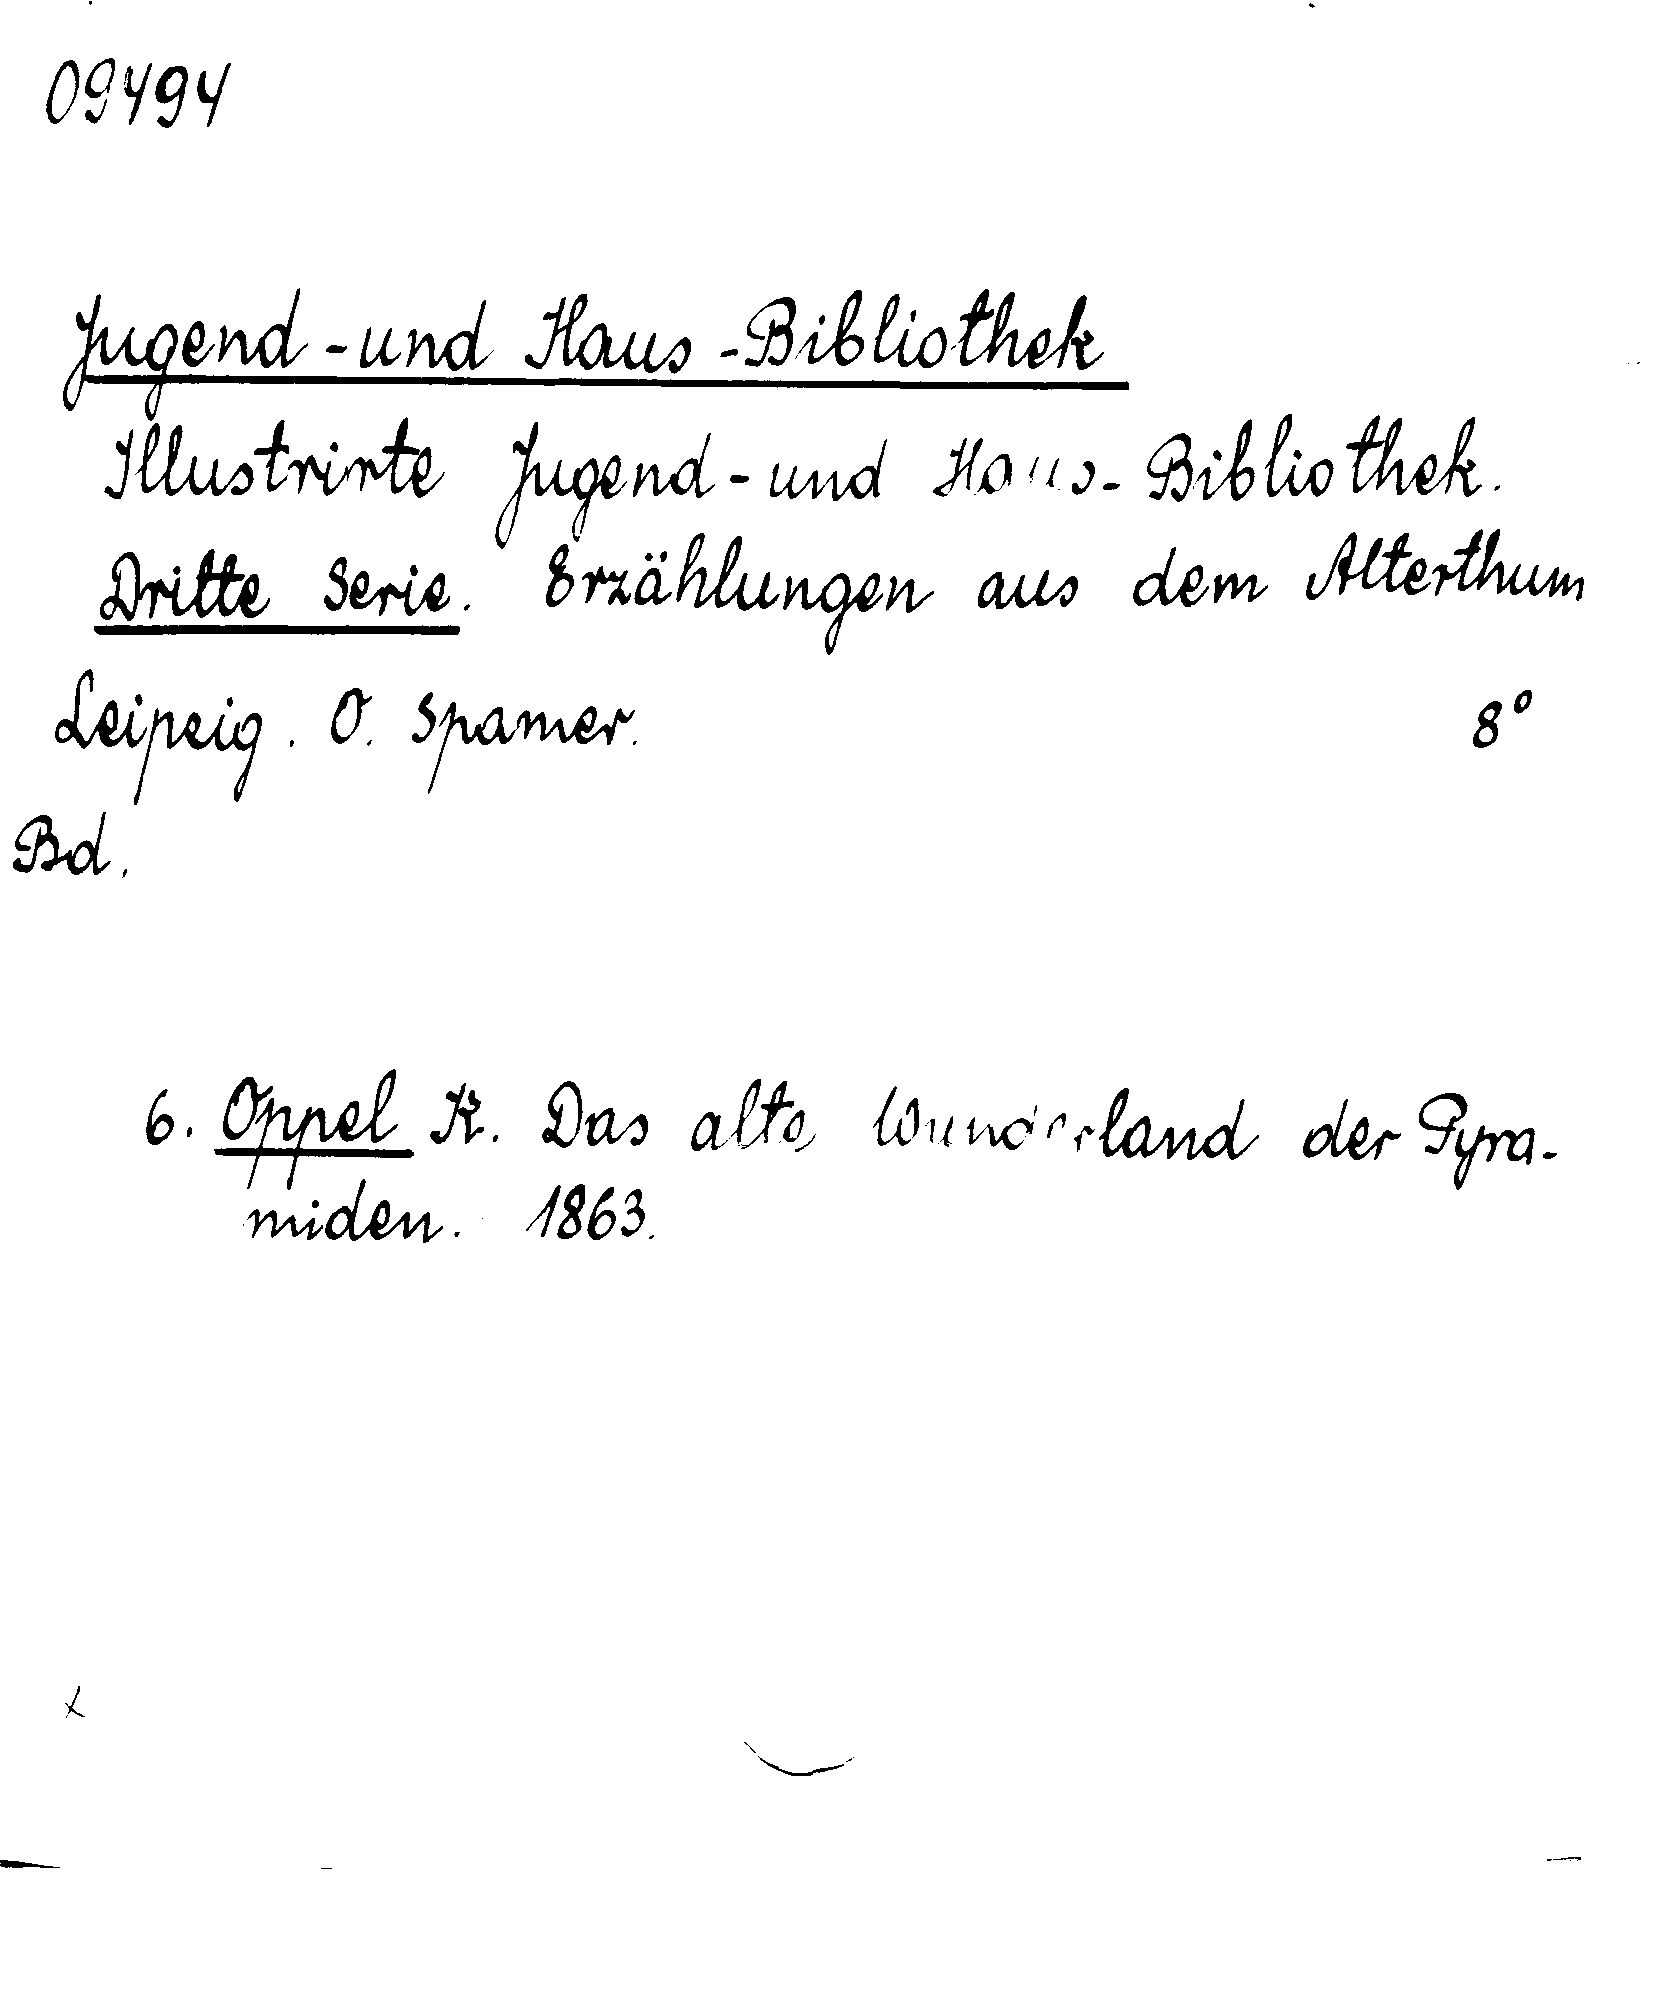 09494
Jugend-und Haus-Bibliothek
Illustrirte Jugend-und Haus-Bibliothek.
Dritte Serie. Erzählungen aus dem Alterthum
Leipzig. O. Spamer. 8°
Bd.
6. Oppel K. Das alte Wunderland der Pyra-
miden. 1863.